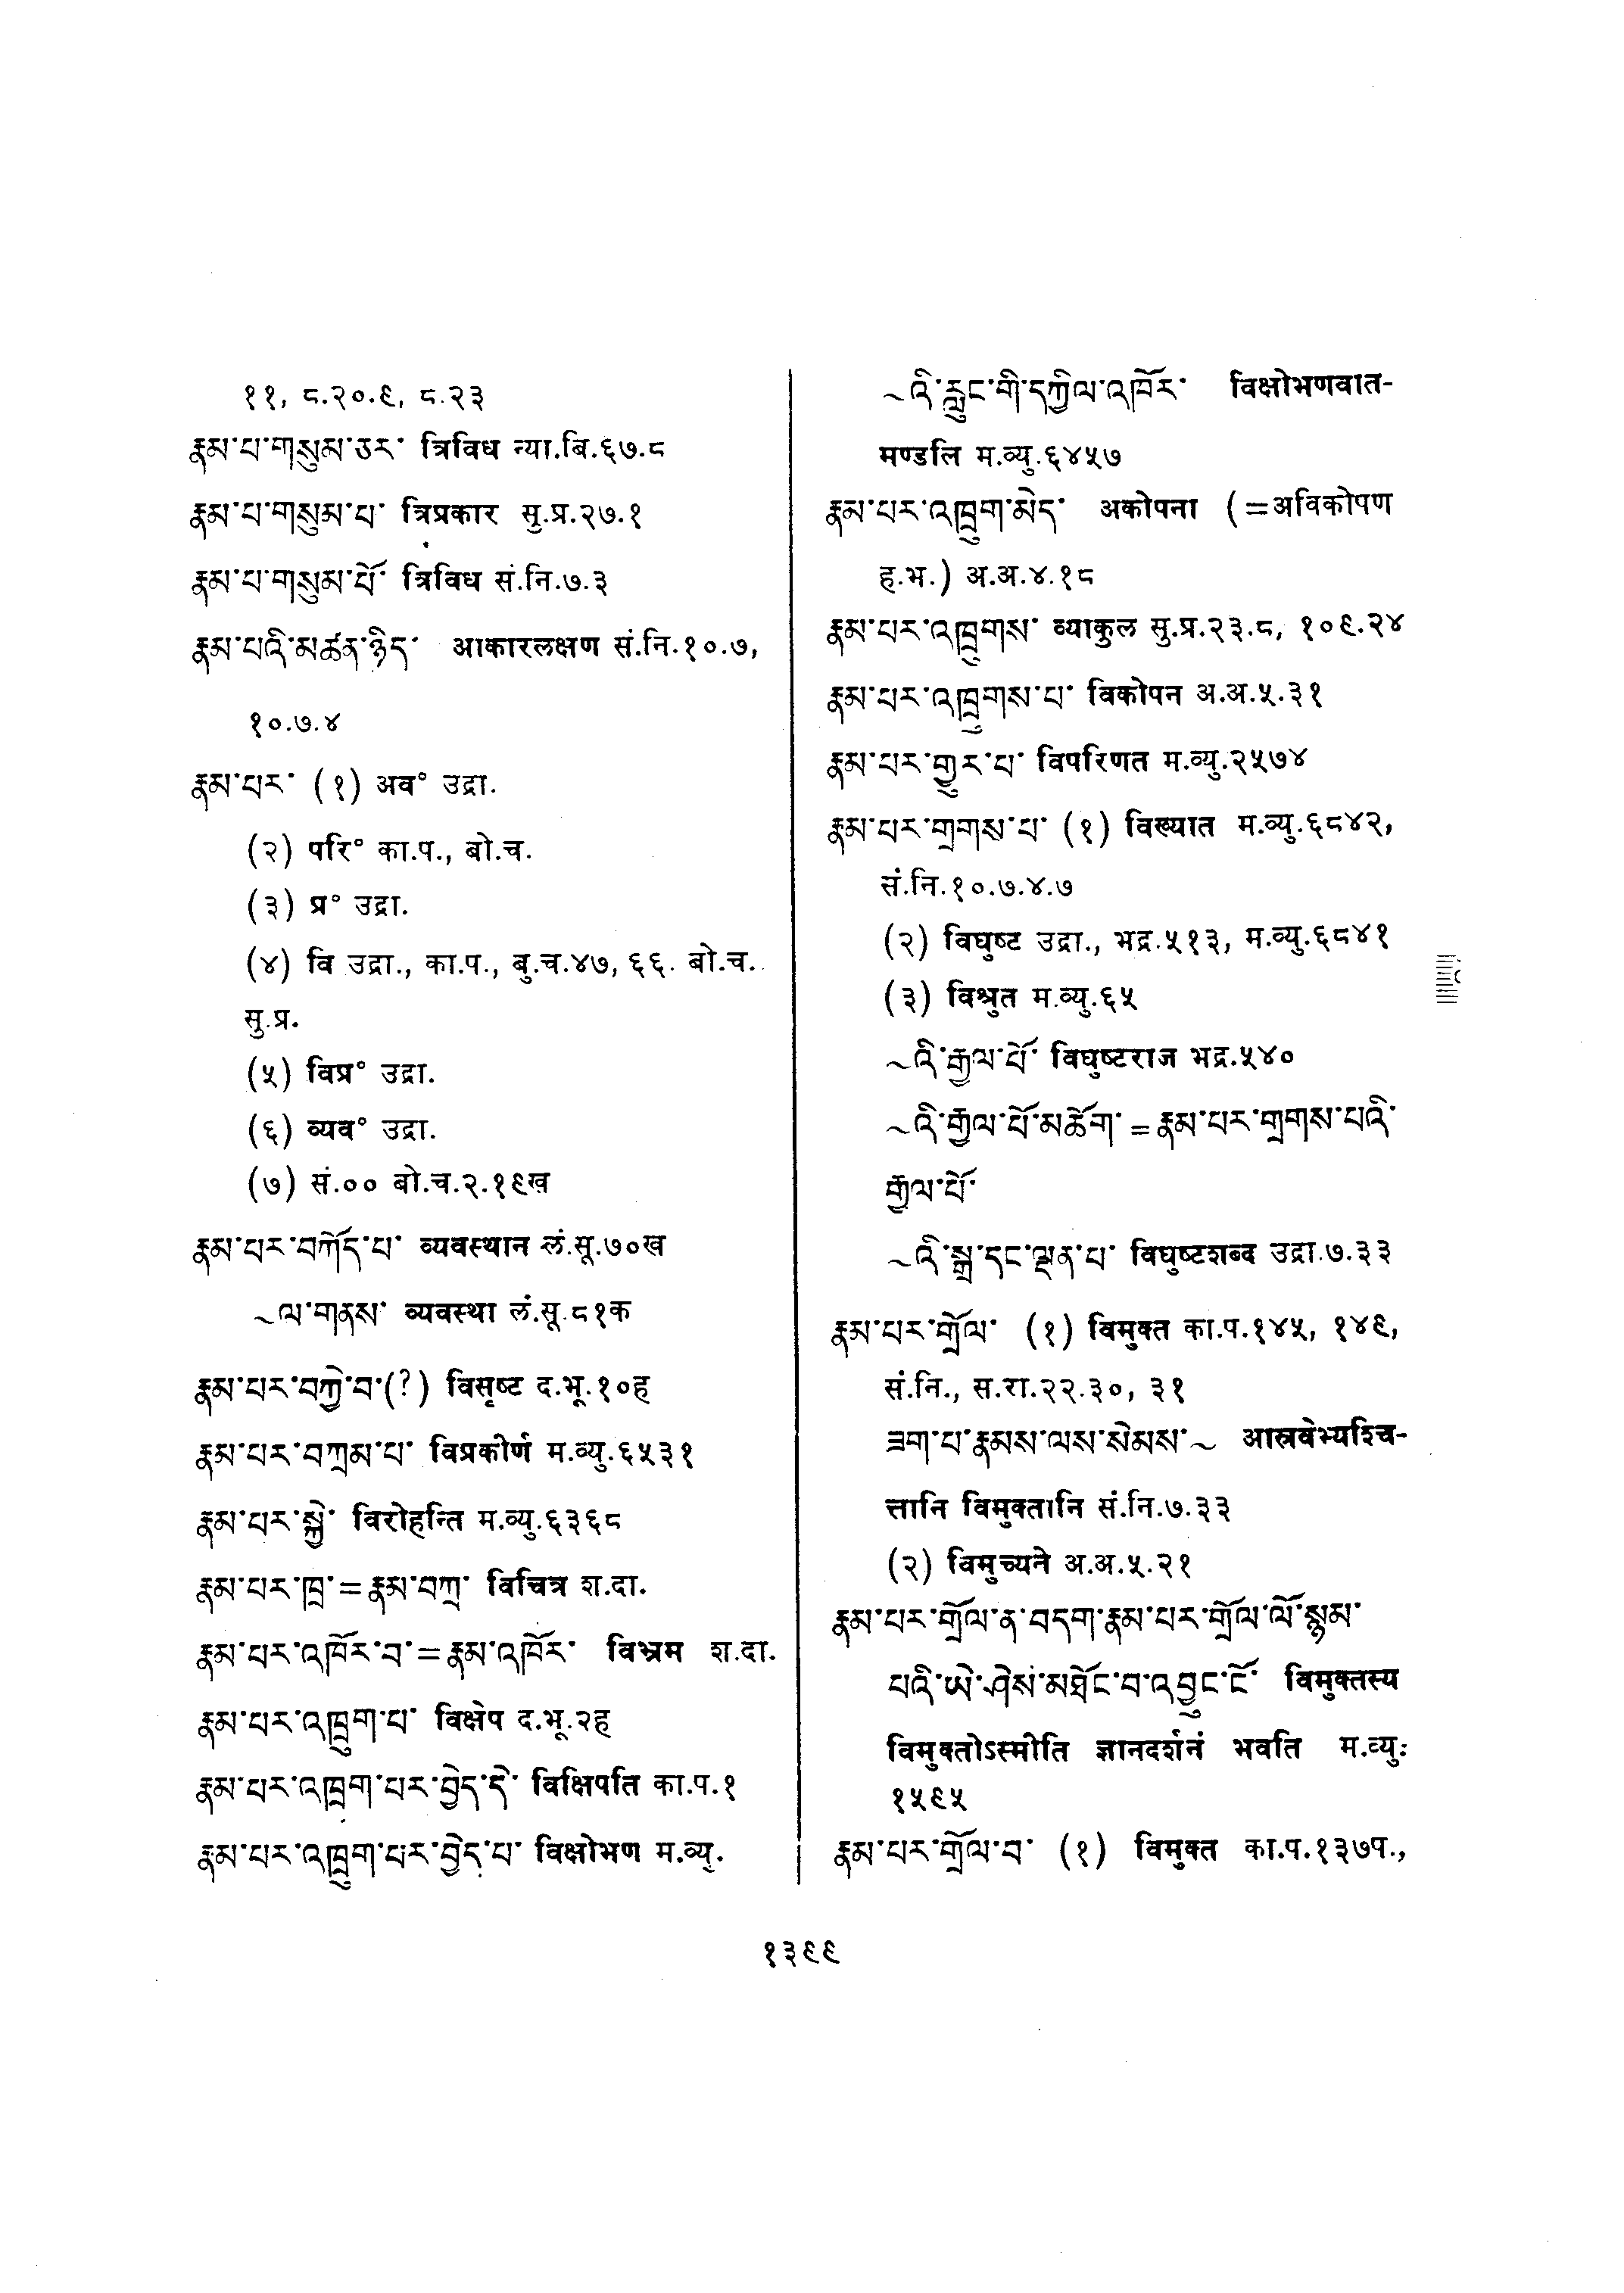 ११, ८.२०.९, ८.२३
རྣམ་པ་གསུམ་ཅར་ त्रिविध न्या.बि.६७.८
རྣམ་པ་གསུམ་པ་ त्रिप्रकार सु.प्र.२७.१
རྣམ་པ་གསུམ་པོ་ त्रिविध सं.नि.७.३
རྣམ་པའི་མཚན་ཉིད་ आकारलक्षण सं.नि.१०.७,
१०.७.४
རྣམ་པར་ (१) अव° उद्रा.
(२) परि° का.प., बो.च.
(३) प्र° उद्रा.
(४) वि उद्रा., का.प., बु.च.४७, ६६. बो.च.
सु.प्र.
(५) विप्र° उद्रा.
(६) व्यव° उद्रा.
(७) सं.०० बो.च.२.१९ख
རྣམ་པར་བཀོད་པ་ व्यवस्थान लं.सू.७०ख
~ལ་གནས་ व्यवस्था लं.सू.८१क
རྣམ་པར་བཀྱེ་བ་(?) विसृष्ट द.भू.१०ह
རྣམ་པར་བཀྲམ་པ་ विप्रकीर्ण म.व्यु.६५३१
རྣམ་པར་སྐྱེ་ विरोहन्ति म.व्यु.६३६८
རྣམ་པར་ཁྲ་=རྣམ་བཀྲ་ विचित्र श.दा.
རྣམ་པར་འཁོར་བ་=རྣམ་འཁོར་ विभ्रम श.दा.
རྣམ་པར་འཁྲུག་པ་ विक्षेप द.भू.२ह
རྣམ་པར་འཁྲག་པར་བྱེད་དེ་ विक्षिपति का.प.१
རྣམ་པར་འཁྲུག་པར་བྱེད་པ་ विक्षोभण म.व्यु.
~འི་རླུང་གི་དཀྱིལ་འཁོར་ विक्षोभणवात-
मण्डलि म.व्यु.६४५७
རྣམ་པར་འཁྲུག་མེད་ अकोपना (=अविकोपण
ह.भ.) अ.अ.४.१८
རྣམ་པར་འཁྲུགས་ व्याकुल सु.प्र.२३.८, १०९.२४
རྣམ་པར་འཁྲུགས་པ་ विकोपन अ.अ.५.३१
རྣམ་པར་གྱུར་པ་ विपरिणत म.व्यु.२५७४
རྣམ་པར་གྲགས་པ་ (१) विख्यात म.व्यु.६८४२,
सं.नि.१०.७.४.७
(२) विघुष्ट उद्रा., भद्र.५१३, म.व्यु.६८४१
(३) विश्रुत म.व्यु.६५
~འི་རྒྱལ་པོ་ विघुष्टराज भद्र.५४०
~འི་རྒྱལ་པོ་མཆོག་=རྣམ་པར་གྲགས་པའི་
རྒྱལ་པོ་
~འི་སྒྲ་དང་ལྡན་པ་ विघुष्टशब्द उद्रा.७.३३
རྣམ་པར་གྲོལ་ (१) विमुक्त का.प.१४५, १४९,
सं.नि., स.रा.२२.३०, ३१
ཟག་པ་རྣམས་ལས་སེམས་~ आस्रवेभ्यश्चि-
त्तानि विमुक्तानि सं.नि.७.३३
(२) विमुच्यने अ.अ.५.२१
རྣམ་པར་གྲོལ་ན་བདག་རྣམ་པར་གྲོལ་ལོ་སྙམ་
པའི་ཡེ་ཤེས་མཐོང་བ་འབྱུང་ངོ་ विमुक्तस्य
विमुक्तोऽस्मीति ज्ञानदर्शनं भवति म.व्यु:
१५९५
རྣམ་པར་གྲོལ་བ་ (१) विमुक्त का.प.१३७प.,
१३९९